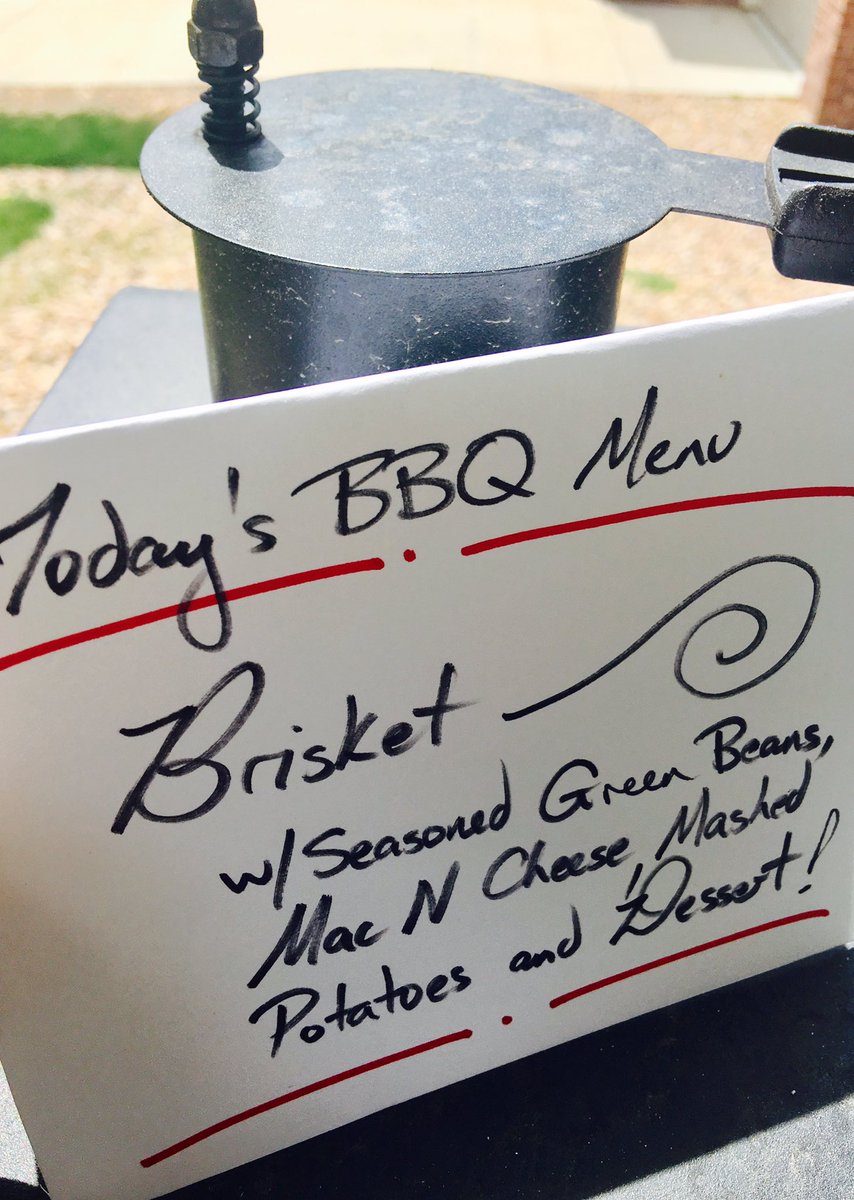 Today's BBQ Menu
Brisket
w/ Seasoned Green Beans,
Mac N Cheese, Mashed
Potatoes and Dessert!